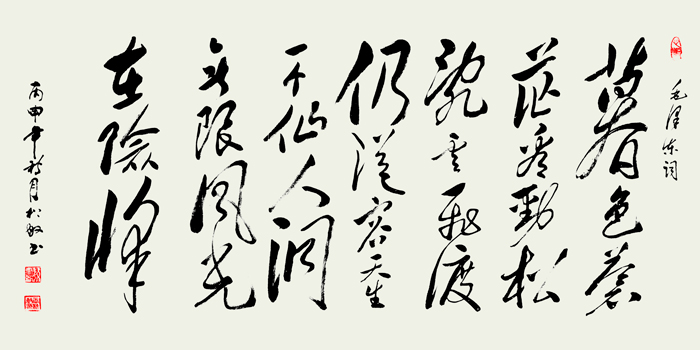 毛泽东词
暮色苍
茫看劲松
乱云飞渡
仍从容天生
一个仙人洞
无限风光
在险峰
丙申年月书